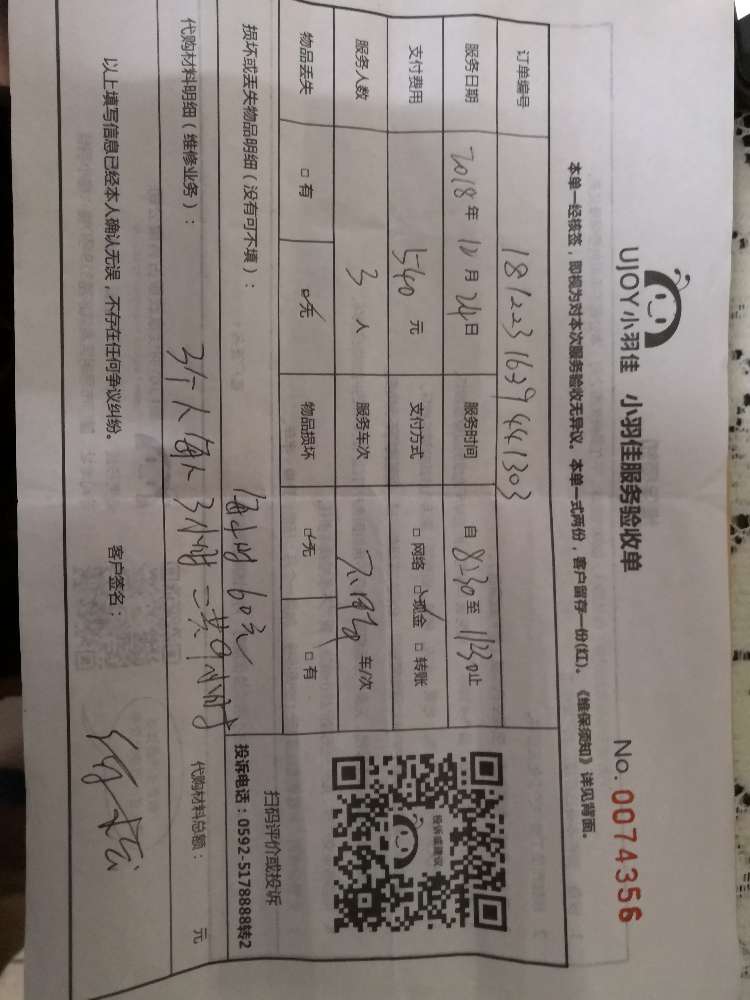 UJOY小羽佳 小羽佳服务验收单 No. 0074356
本单一经核签，即视为对本次服务验收无异议。本单一式两份，客户留存一份(红)。《维保须知》详见背面。
订单编号 181223163944 1303
服务日期 2018年12月24日 服务时间 自8:30至11:30止
支付费用 540元 支付方式 □网络 ☑现金 □转账
服务人数 3人 服务车次 车/次
物品丢失 □有 ☑无 物品损坏 ☑无 □有
损坏或丢失物品明细（没有可不填）： 每小时60元
扫码评价或投诉
投诉电话：0592-5178888转2
投诉或建议
代购材料明细（维修业务）： 3个人每人3小时 一共9小时 代购材料总额： 元
以上填写信息已经本人确认无误，不存在任何争议纠纷。 客户签名：